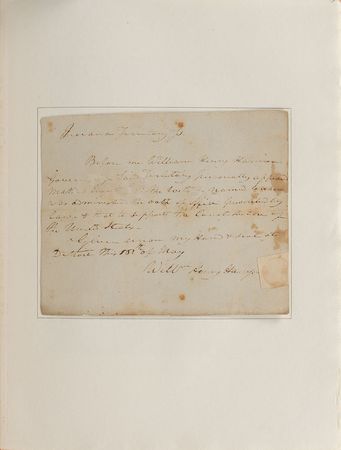 Indiana Territory Ss.
Before me William Henry Harrison
Governor of Said Territory personally appeared
was administered the oath of office prescribed by
Law & that to support the Constitution of
the United States.
Given under my Hand & seal at
Detroit this 18th of May
Willm Henry Harrison